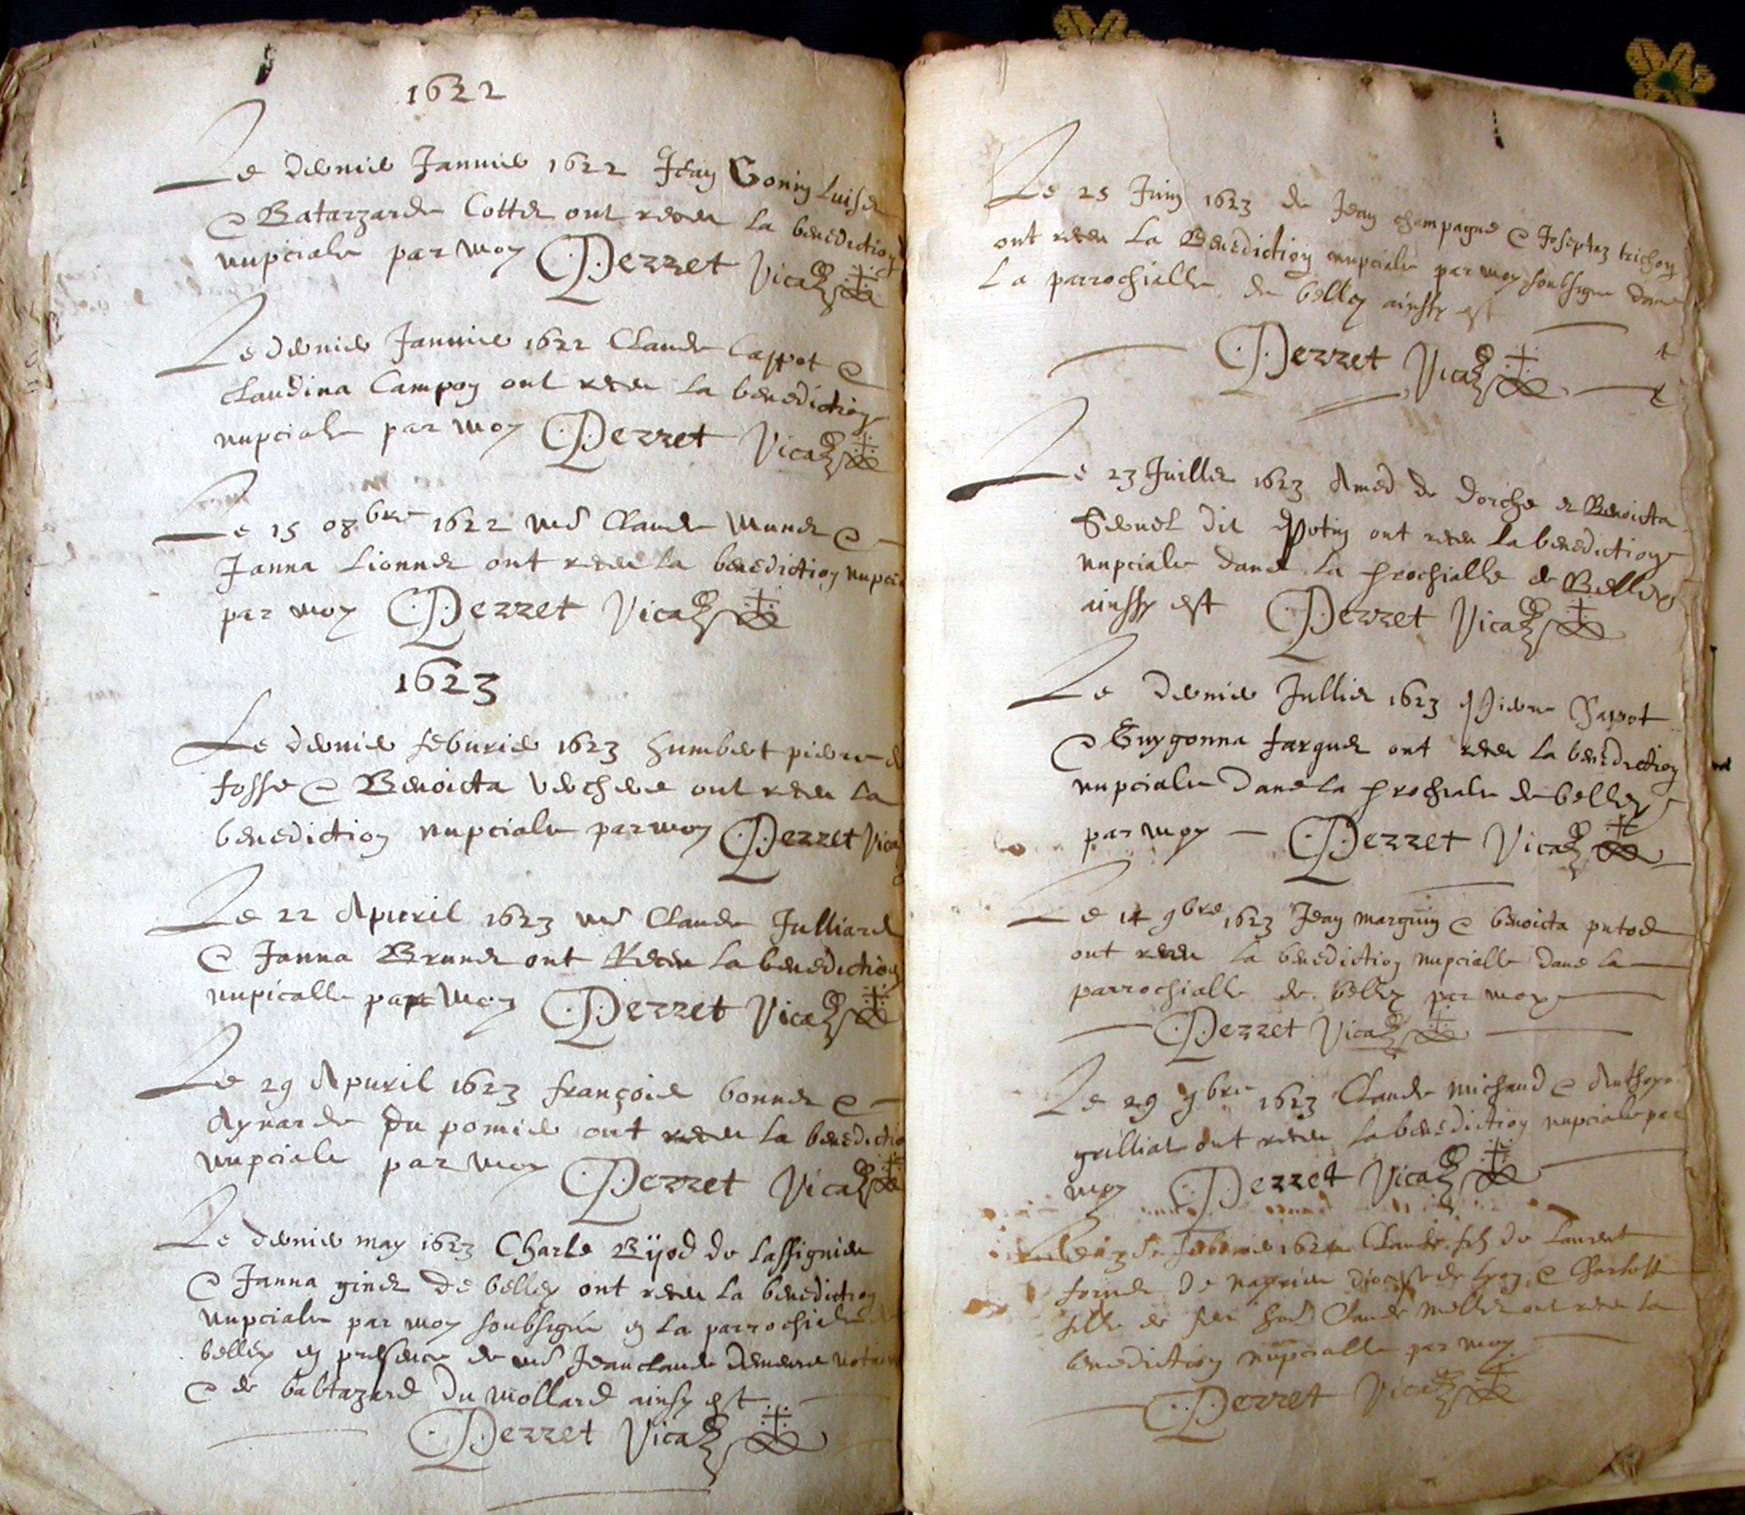 1622
Le dernier Janvier 1622 Jean Gonin
e Batarzarde Cotter ont receu la benediction
nupciale par moy Perret Vicaire
Le dernier Janvier 1622 Claude Cappot e
Claudina Campon ont receu la benediction
nupciale par moy Perret Vicaire
Le 15 08bre 1622 Claude Munet e
Janna Lionnet ont receu la benediction nupcia
par moy Perret Vicaire
1623
Le dernier feburier 1623 humbert pierre
fosse e Benoicta ont receu la
benediction nupciale par moy Perret Vica
Le 22 Apvril 1623 Claude Julliard
e Janna Brunet ont Receu la benediction
nupicalle par moy Perret Vicaire
Le 29 Apvril 1623 françois bonnet e
Aynarde du pomier ont receu la benedictio
nupciale par moy Perret Vicaire
Le dernier may 1623 Charle Bijod de Lassignieu
e Janna ginet de belley ont receu la benediction
nupciale par moy soubsigné en la parrochiale
belley en presence de Jean claude notai
e de baltazard du mollard ainsy est
Perret Vicaire
Le 25 Juin 1623 de Jean champagne e Josephaz trichon
ont receu La Benediction nupciale par moy soubsigne dans
La parrochialle de belley ainssy est
Perret Vicaire
Le 23 Juillet 1623 Amed de dorche et Benoicta
dit potin ont receu la benediction
nupciale dans la prochialle de Belley
ainssy est Perret Vicaire
Le dernier Jullied 1623 pierre Sappot
e Guygonna farguet ont receu la benediction
nupciale dans la prochiale de belley
par moy Perret Vicaire
Le 14 9bre 1623 Jean marguin e benoicta putod
ont receu la benediction nupcialle dans la
parrochialle de belley par moy
Perret Vicaire
Le 29 9bre 1623 Claude michaud e Anthoyne
grilliat ont receu la benediction nupciale par
moy Perret Vicaire
feburier 1624 Claude filz de Laurent
de diocese de lyon e Charlotte
fille de feu Claude mollet ont receu la
benediction nupcialle par moy
Perret Vicaire